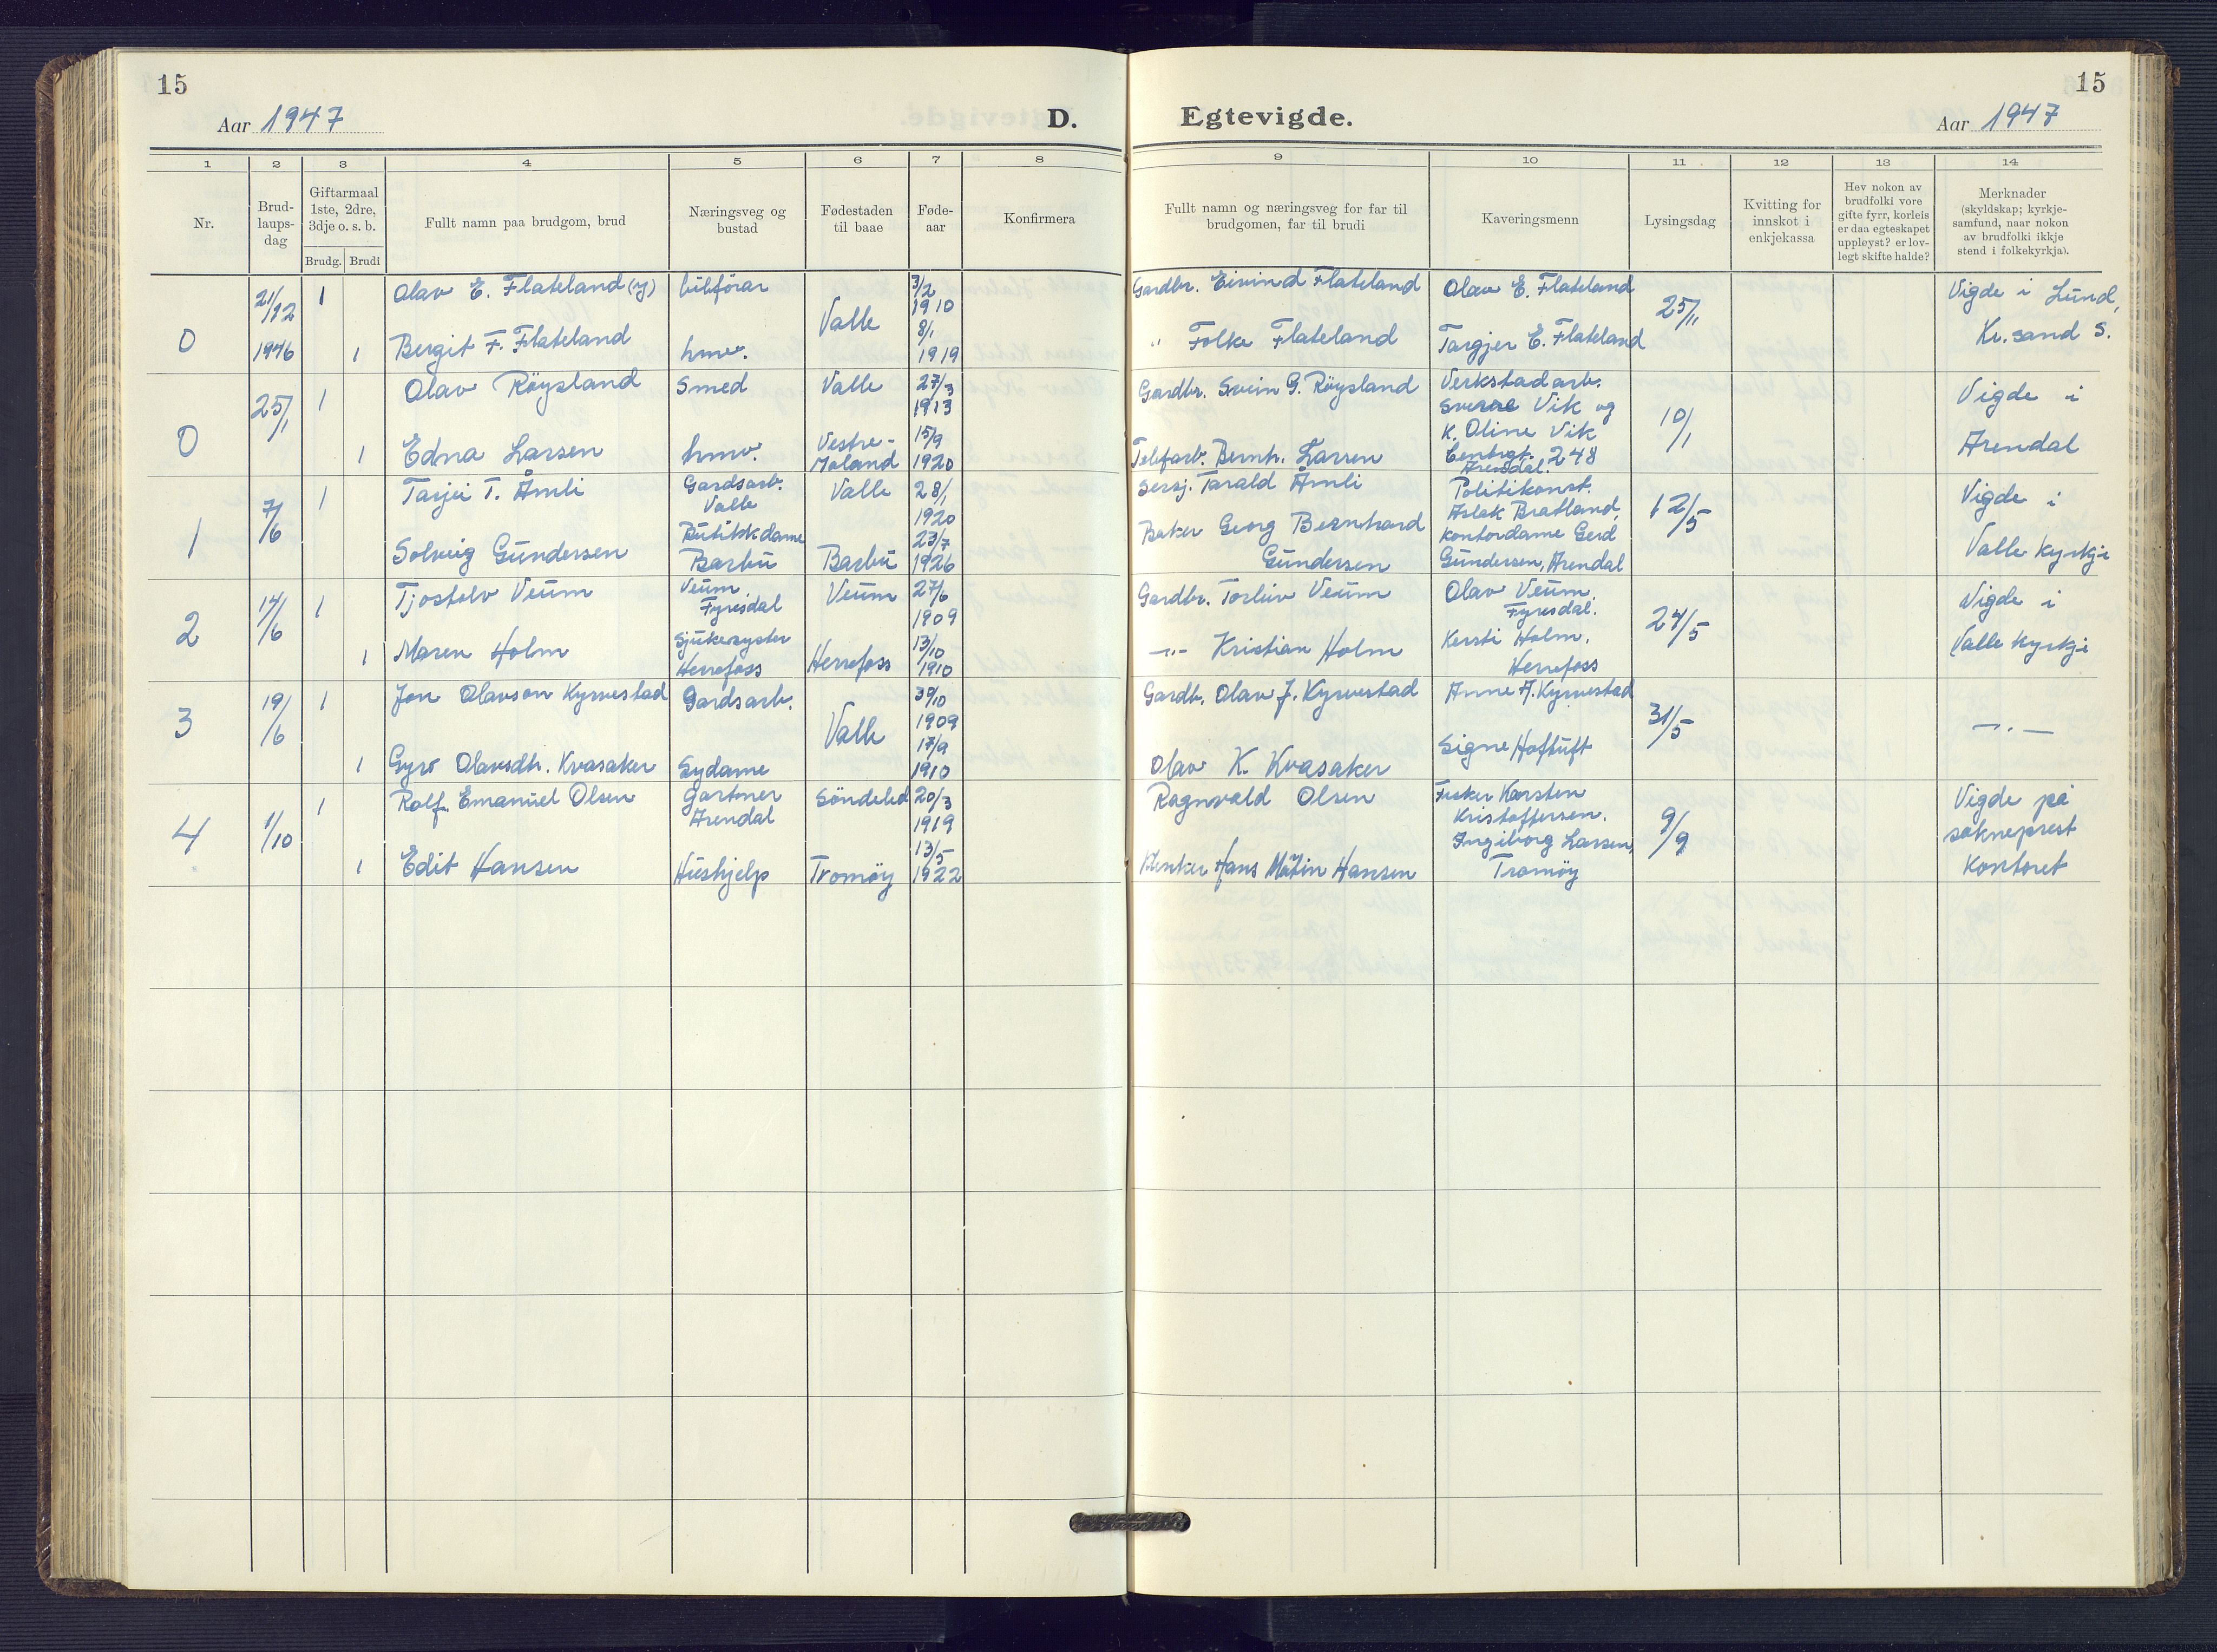 15
Aar 1947
D.
Egtevigde.
15
Aar 1947
1 2 3 4 5 6 7 8 9 10 11 12 13 14
Nr.
Brud-
laups-
dag
Giftarmaal
1ste, 2dre,
3dje o. s. b.
Brudg. Brudi
Fullt namn paa brudgom, brud
Næringsveg og
bustad
Fødestaden
til baae
Føde-
aar
Konfirmera
Fullt namn og næringsveg for far til
brudgomen, far til brudi
Kaveringsmenn
Lysingsdag
Kvitting for
innskot i
enkjekassa
Hev nokon av
brudfolki vore
gifte fyrr, korleis
er daa egteskapet
uppløyst? er lov-
legt skifte halde?
Merknader
(skyldskap; kyrkje-
samfund, naar nokon
av brudfolki ikkje
stend i folkekyrkja).
0
21/12
1946
1
Olav E. Flateland (y)
bilförar
Valle
3/2
1910
Gardbr. Eivind Flateland
Olav E. Flateland
25/11
Vigde i Lund,
Kr.sand S.
1
Bergit F. Flateland
hmv.
8/1
1919
" Folke Flateland
Targjer E. Flateland
0
25/1
1
Olav Röysland
Smed
Valle
27/3
1913
Gardbr. Svein G. Röysland
Verkstadarb.
Sverre Vik og
K. Oline Vik
10/1
Vigde i
Arendal
1
Edna Larsen
hmv.
Vestre-
Moland
15/9
1920
Telefarb. Bernh. Larsen
248
Arendal.
1
7/6
1
Tarjei T. Åmli
Gardsarb.
Valle
Valle
28/1
1920
Tarald Åmli
Politikonst.
Aslak Bratland,
12/5
Vigde i
Valle kyrkje
Solveig Gundersen
Butikkdame
Barbu
Barbu
23/7
1926
Baker Georg Bernhard
Gundersen
kontordame Gerd
Gundersen, Arendal
2
14/6
1
Tjostolv Veum
Veum,
Fyresdal
Veum
27/6
1909
Gardbr. Torleiv Veum
Olav Veum,
Fyresdal.
24/5
Vigde i
Valle kyrkje
1
Maren Holm
Sjukesyster
Herrefoss
Herrefoss
13/10
1910
—"— Kristian Holm
Kersti Holm,
Herrefoss
3
19/6
1
Jon Olavson Kyrvestad
Gardsarb.
Valle
30/10
1909
Gardb. Olav J. Kyrvestad
Anne A. Kyrvestad
31/5
—"—
1
Gyro Olavsdtr. Kvasaker
Sydame
17/9
1910
Olav K. Kvasaker
Signe Hoftuft
4
1/10
1
Rolf Emanuel Olsen
Gartner
Arendal
Söndeled
20/3
1919
Ragnvald Olsen
Fisker Karsten
Kristoffersen.
9/9
Vigde på
sokneprest
kontoret
1
Edit Hansen
Hushjelp
Tromöy
13/5
1922
Hans Martin Hansen
Ingiborg Larsen,
Tromöy